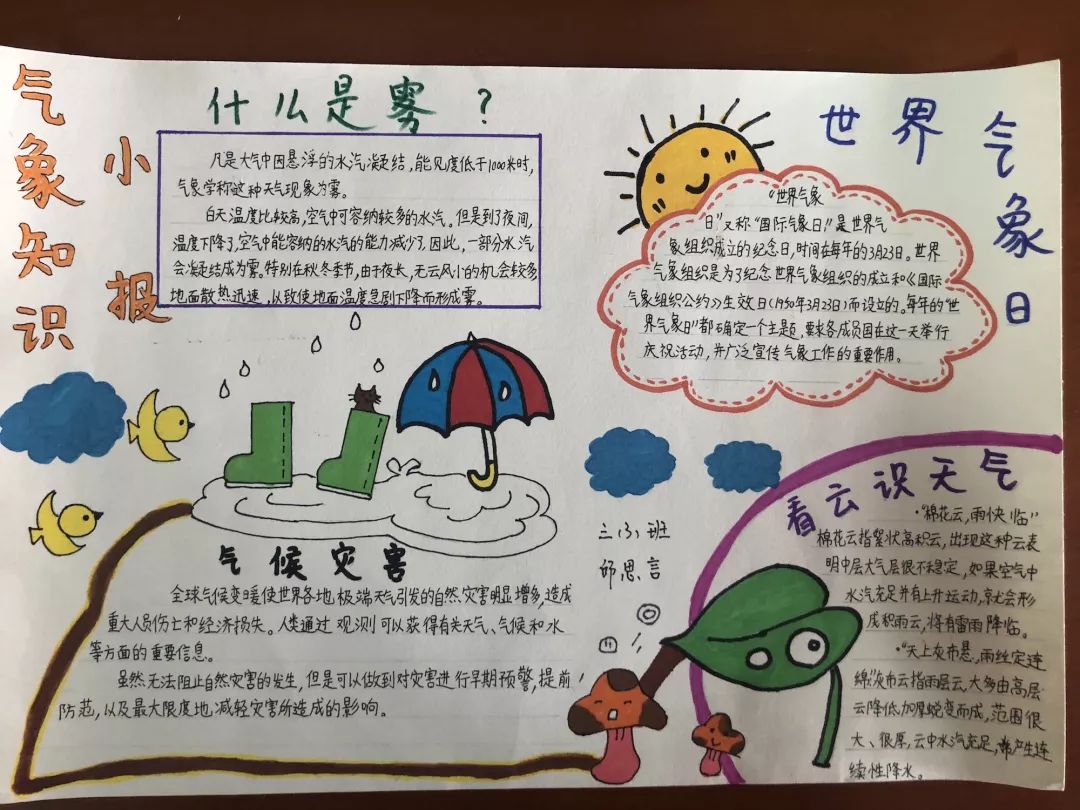 气象知识
小报
什么是雾？
凡是大气中因悬浮的水汽凝结，能见度低于1000米时，
气象学称这种天气现象为雾。
白天温度比较高，空气中可容纳较多的水汽。但是到了夜间，
温度下降了，空气中能容纳的水汽的能力减少了，因此，一部分水汽
会凝结成为雾。特别在秋冬季节，由于夜长，无云风小的机会较多
地面散热迅速，以致使地面温度急剧下降而形成雾。
世界气象日
“世界气象
日”又称“国际气象日”，是世界气
象组织成立的纪念日，时间在每年的3月23日。世界
气象组织是为了纪念世界气象组织的成立和《国际
气象组织公约》生效日（1950年3月23日）而设立的。每年的“世
界气象日”都确定一个主题，要求各成员国在这一天举行
庆祝活动，并广泛宣传气象工作的重要作用。
气候灾害
全球气候变暖使世界各地极端天气引发的自然灾害明显增多，造成
重大人员伤亡和经济损失。人类通过观测可以获得有关天气、气候和水
等方面的重要信息。
虽然无法阻止自然灾害的发生，但是可以做到对灾害进行早期预警，提前
防范，以及最大限度地减轻灾害所造成的影响。
三（3）班
邱思言
看云识天气
·“棉花云，雨快临”
棉花云指絮状高积云，出现这种云表
明中层大气层很不稳定，如果空气中
水汽充足并有上升运动，就会形
成积雨云，将有雷雨降临。
·“天上灰布悬，雨丝定连
绵”灰布云指雨层云，大多由高层
云降低加厚蜕变而成，范围很
大、很厚，云中水汽充足，常产生连
续性降水。